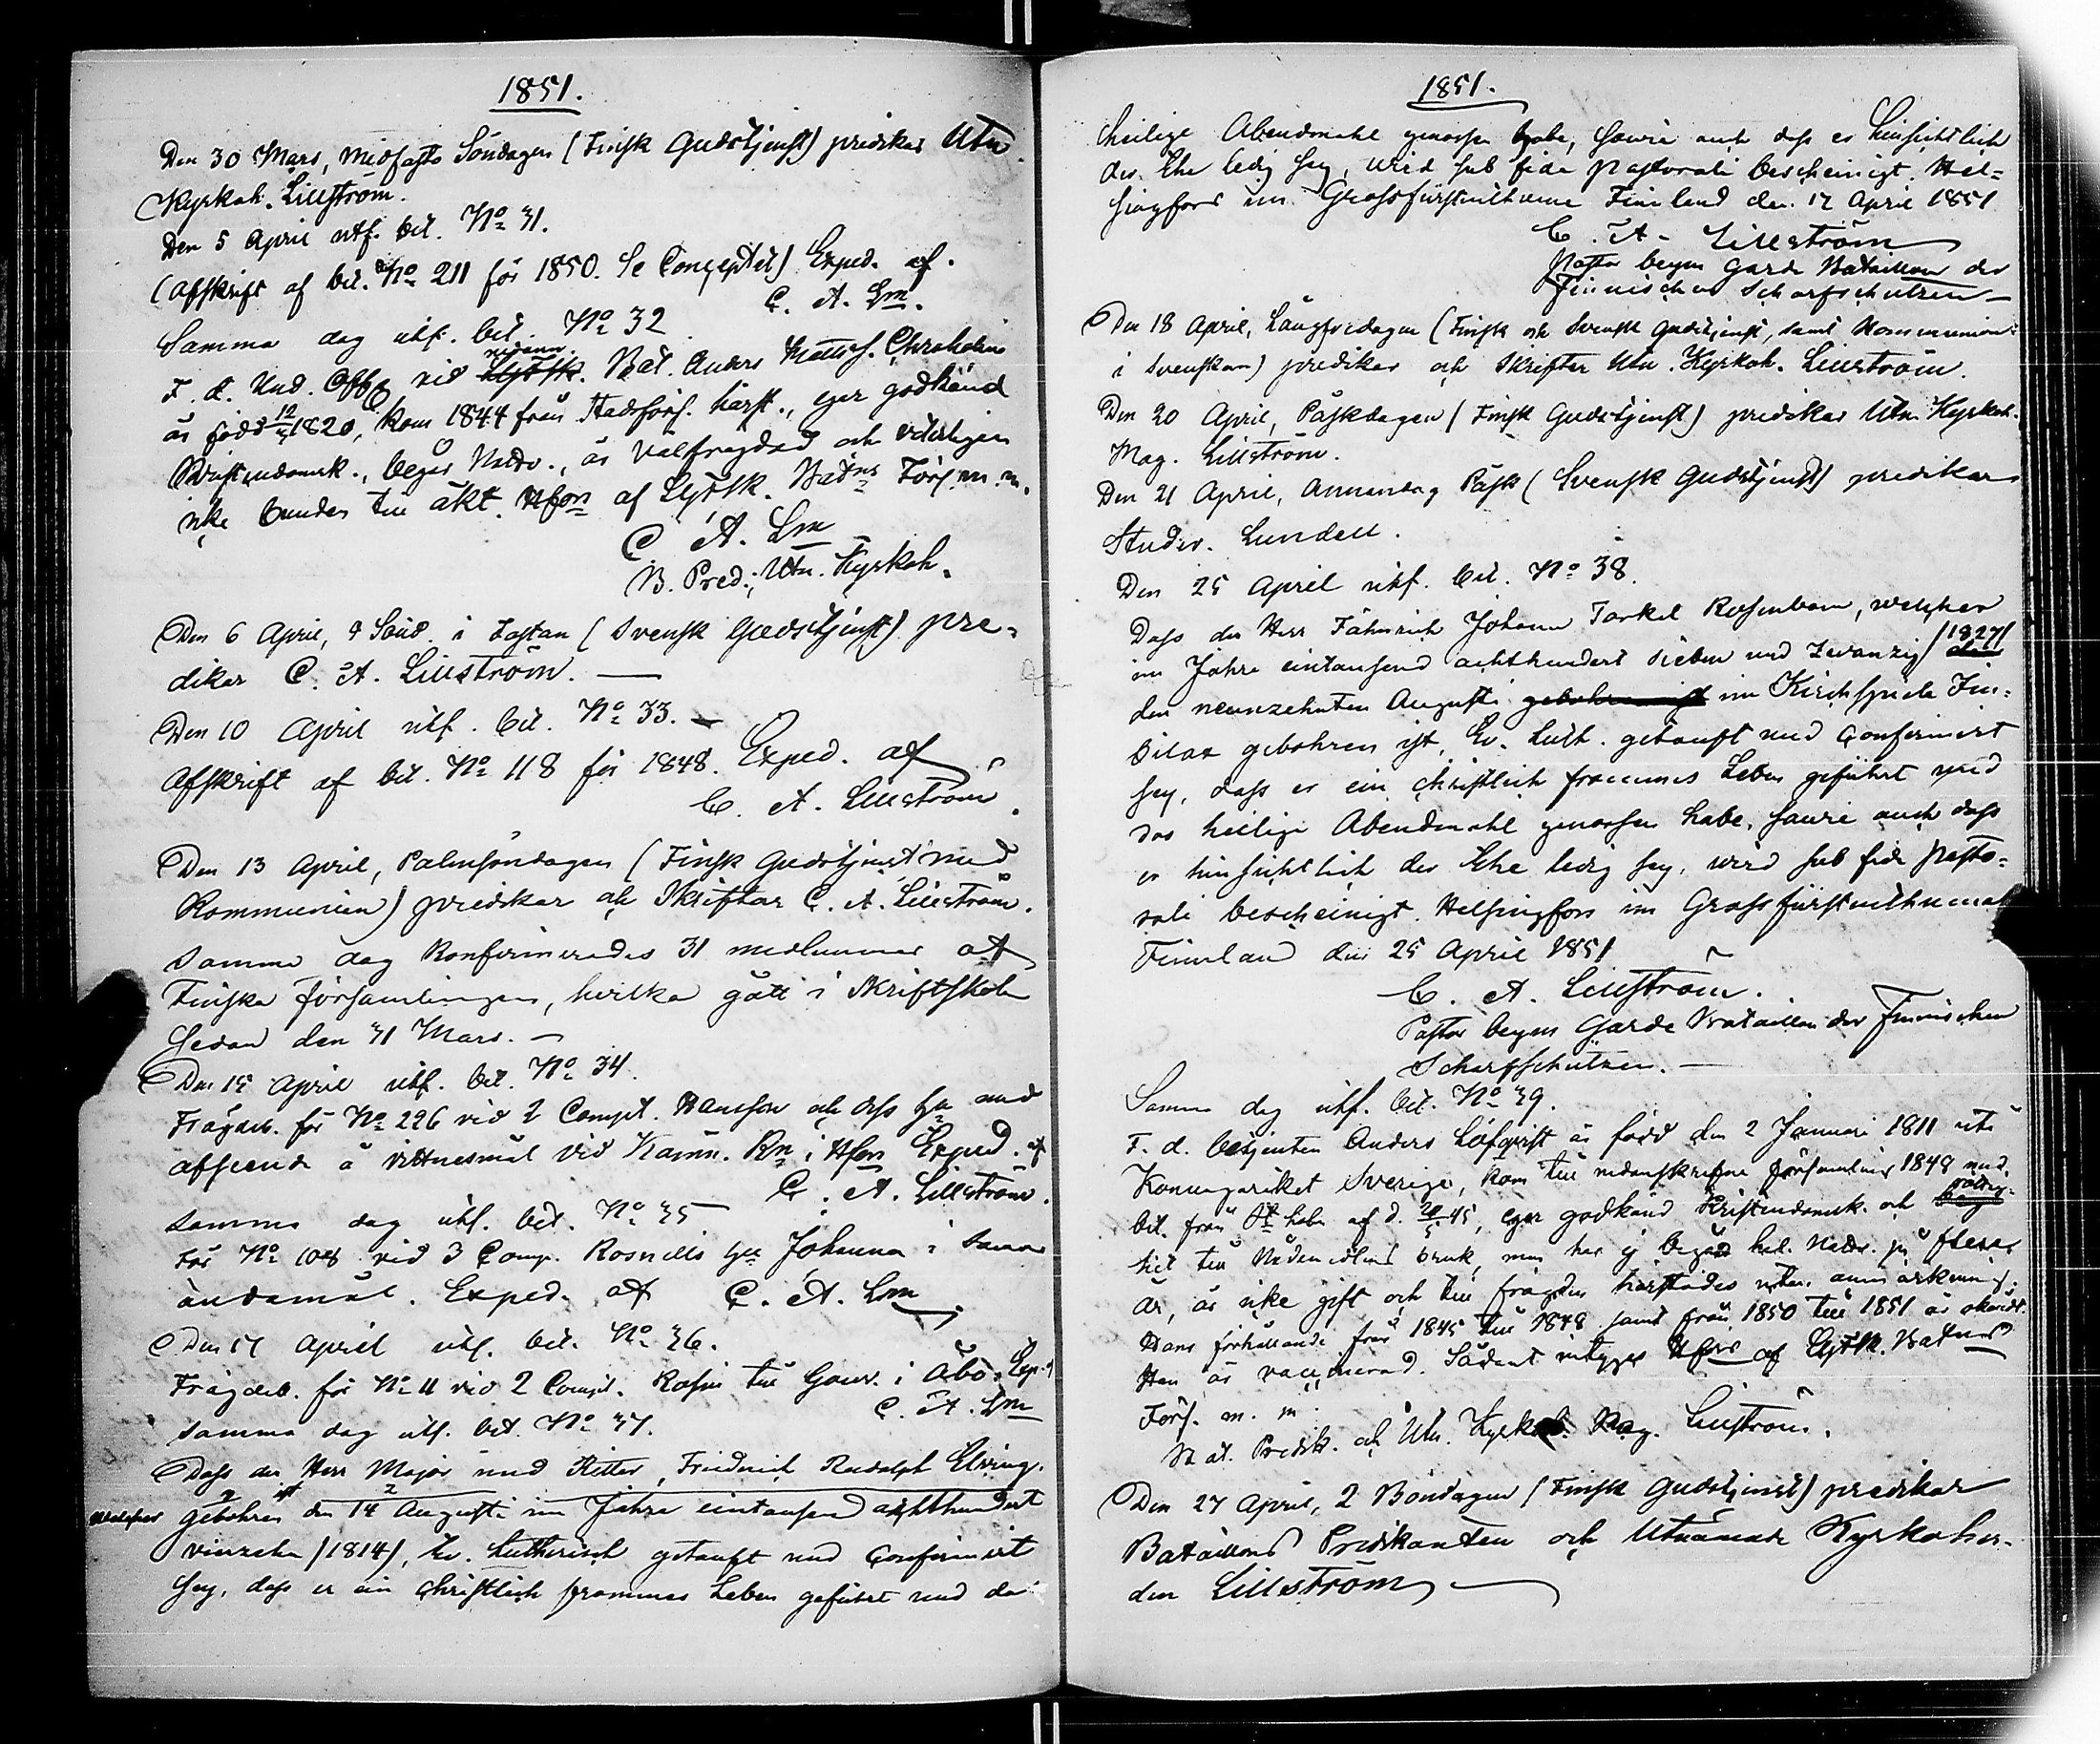 1851.
Den 30 Mars, Midfasto Söndagen (Finsk Gudstjenst) predikar Utn.
Kyrkoh. Lillström.
Den 5 April utf. bet. No 31.
(Afskrift af bet. No 211 för 1850. Se Conceptet) Exped. af.
C. A. Lm.
Samma dag utf. bet. No 32
F. d. Und. Off. vid Bat. Anders Mattsf.
är född 12/3 1820, kom 1844 från Stadsförs. härst., eger godkänd
Kristendomsk., begår Nattv., är välfrägdad och veterligen
icke bunden till äkt. Hfors af Ljfsk. Batns Förs. m. m.
C. A. Lm
B. Pred., Utn. Kyrkoh.
Den 6 April, 5 Sönd. i Fastan (Svensk Gudstjenst) pre-
dikar C. A. Lillström.
Den 10 April utf. bet. No 33.
Afskrift af bet. No 118 för 1848. Exped. af
C. A. Lillström.
Den 13 April, Palmsöndagen (Finsk Gudstjenst med
Kommunion) predikar och Skriftar C. A. Lillström.
Samma dag konfirmerades 31 medlemmar af
Finska församlingen, hvilka gått i Skriftskola
sedan den 31 Mars.
Den 15 April utf. bet. No 34.
Frägdeb. för No 226 vid 2 Comp. Hansson och dess Hu med
afseende å vittnesmål vid Kämn. Rn i Hfors Exped. af
C. A. Lillström.
Samma dag utf. bet. No 35
För No 108 vid 3 Comp. Rosnells Hu Johanna i samma
ändamål. Exped. af C. A. Lm
Den 17 April utf. bet. No 36.
Frägdeb. för No 11 vid 2 Comp. Rosin till Gouv. i Åbo. Exp. af
C. A. Lm
Samma dag utf. bet. No 37.
Dass der Herr Major und Ritter, Friedrich Rudolph Elving.
welcher gebohren ist den 14 Augusti im Jahre eintausend achthundert
vierzehn /1814/, Ev. Lutherisch getauft und Confirmirt
sey, dass er ein Christlich frommes Leben geführt und das
1851.
heilige Abendmahl genossen habe, sowie auch dass er hinsichtlich
der Ehe ledig sey, wird sub fide pastorali bescheinigt. Hel-
singfors im Grossfürstenthume Finland den 17 April 1851
C. A. Lillström
Pastor beym Garde Bataillon der
Finnischen Scharfschützen
Den 18 April, Långfredagen (Finsk och Svensk Gudstjenst, samt Kommunion
i Svenskan) predikar och Skriftar Utn. Kyrkoh. Lillström.
Den 20 April, Påskdagen (Finsk Gudstjenst) predikar Utn. Kyrkoh.
Mag. Lillström.
Den 21 April, Annandag Påsk (Svensk Gudstjenst) predikar
Studer. Lundell.
Den 25 April utf. bet. No 38.
Dass der Herr Fähnrich Johann Torkel Rosenbom, welcher
im Jahre eintausend achthundert sieben und zwanzig /1827/ den
den neunzehnten Augusti gebohren ist im Kirchspiele
gebohren ist, Ev. Luth. getauft und Confirmirt
sey, dass er ein christlich frommes Leben geführt und
das heilige Abendmahl genossen habe, sowie auch dass
er hinsichtlich der Ehe ledig sey, wird sub fide pasto-
rali bescheinigt. Helsingfors im Grossfürstenthume
Finnland den 25 April 1851
C. A. Lillström.
Pastor beym Garde Bataillon der Finnischen
Scharfschützen.
Samma dag utf. bet. No 39.
F. d. betjenten Anders Löfqvist är född den 2 Januari 1811 uti
Konungariket Sverige, kom till nedanskrifne församling 1848 med
bet. från St. holm af d. 20/5 45, eger godkänd Kristendomsk. och
het till Nådemedlens bruk, men har ej begått hel. Nattv. på flera
år, är icke gift och till frägden härstädes utan anmärkning.
Hans förhållande från 1845 till 1848 samt från 1850 till 1851 är okändt.
Han är vaccinerad. Sådant intygges Hfors af Ljfsk. Batns
Förs. m. m.
Bat. Predik. och Utn. Kyrkoh. Mag. Lillström.
Den 27 April, 2 Böndagen (Finsk Gudstjenst) predikar
Bataillons Predikanten och Utnämnde Kyrkoher-
den Lillström